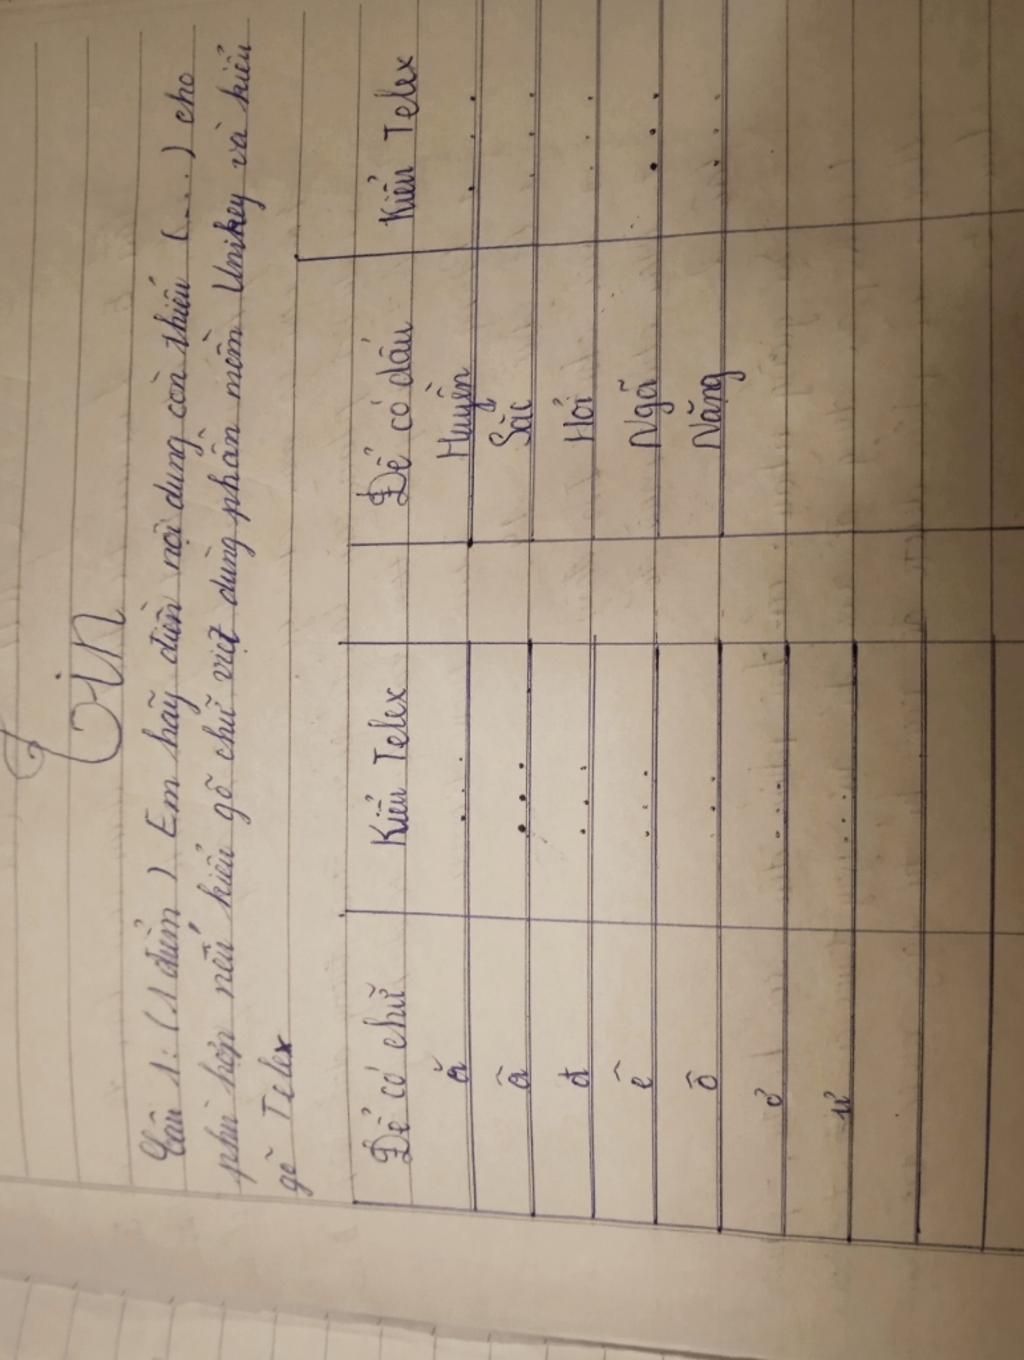 Tin
Câu 1: (1 điểm) Em hãy điền nội dung còn thiếu (....) cho
phù hợp nếu kiểu gõ chữ việt dùng phần mềm Unikey và kiểu
gõ Telex
Để có chữ Kiểu Telex Để có dấu Kiểu Telex
ă ... Huyền ...
â ... Sắc ...
đ ... Hỏi ...
ê ... Ngã ...
ô ... Nặng ...
ơ ....
ư ....